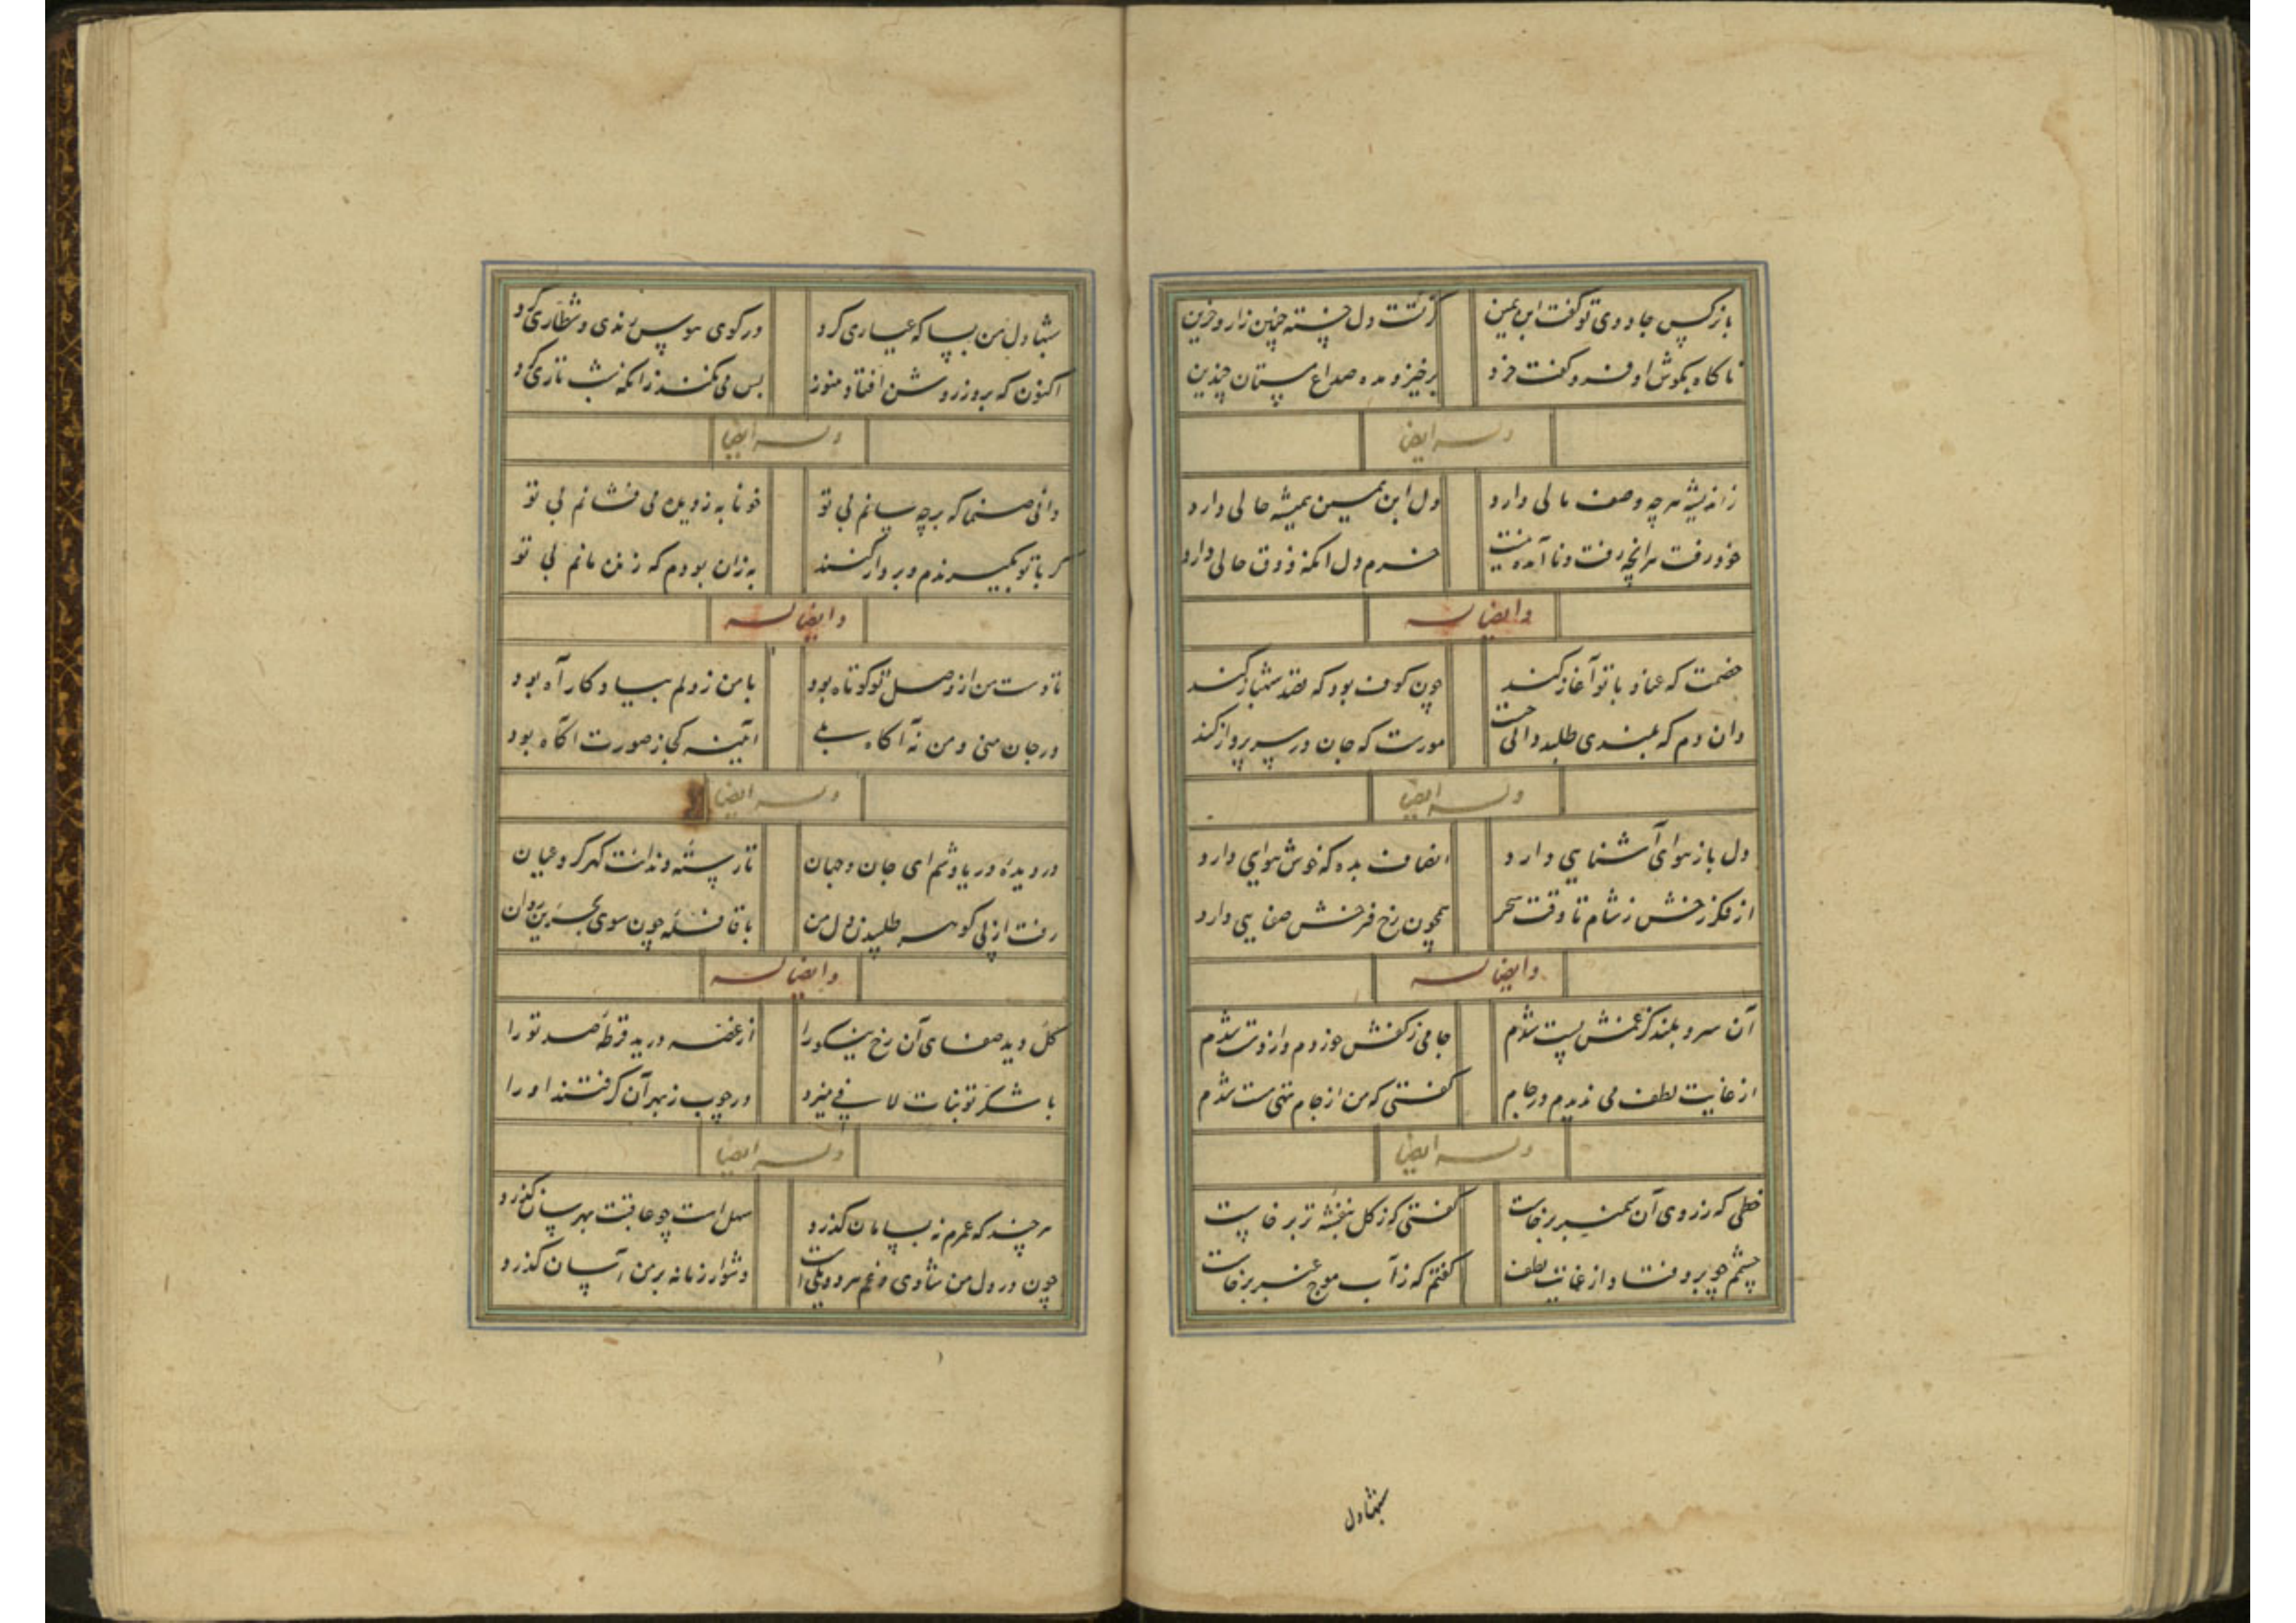 با نرگس جادوی تو گفت ابن یمین کز تست دل خسته چنین زار و حزین
ناگاه بگوش او فرو گفت خرد برخیز و مده صداع مستان چندین
وله ایضا
زاندیشه هرچه وصف مالی دارد دل ابن یمین همیشه حالی دارد
خود رفت هرانچه رفت و نا آمده نیست خرم دل انکه ذوق حالی دارد
وایضا له
خصمت که عناد با تو آغاز کند چون کوف بود که قصد شهباز کند
وان دم که بلندی طلبد دانی چیست مورست که جان در سر پرواز کند
وله ایضا
دل باز هوای آشنایی دارد انصاف بده که خوش هوایی دارد
از فکر رخش ز شام تا وقت سحر همچون رخ فرخش صفایی دارد
وایضا له
آن سرو بلند کز غمش پست شدم جامی ز کفش خوردم و از دست شدم
از غایت لطف می ندیدم در جام گفتی که من از جام تهی مست شدم
وله ایضا
خطی که ز روی آن سمنبر برخاست گفتی که ز گل بنفشه تر برخاست
چشمم چو برو فتاد از غایت لطف گفتم که ز آب موج عنبر برخاست
شبها دل
شبها دل من بسا که عیاری کرد در کوی هوس رندی و شطاری کرد
اکنون که بروز روشن افتاد هنوز بس می نکند زانکه بشب تاری کرد
وله ایضا
دانی صنما که بر چه سانم بی تو خونابه ز دیده می فشانم بی تو
گر با تو بگیرندم و بر دار کنند به زان بودم که زنده مانم بی تو
وایضا له
تا دست من از وصل تو کوتاه بود با من ز دلم بیادگار آه بود
در جان منی و من نه آگاه بلی آیینه کجا ز صورت آگاه بود
وله ایضا
در دیده دریاوشم ای جان و جهان تا رسته دندانت گهر کرد عیان
رفت از پی گوهر طلبیدن دل من با قافله چون سوی بحرین روان
وایضا له
گل دید صفای آن رخ نیکو را از غصه درید قرطه صد تو را
با شکر تو نبات لافی میزد در چوب ز بهر آن گرفتند او را
وله ایضا
هر چند که عمرم نه بسامان گذرد سهل است چو عاقبت بهرسان گذرد
چون در دل من شادی و غم هر دو یکی است دشوار زمانه بر من آسان گذرد